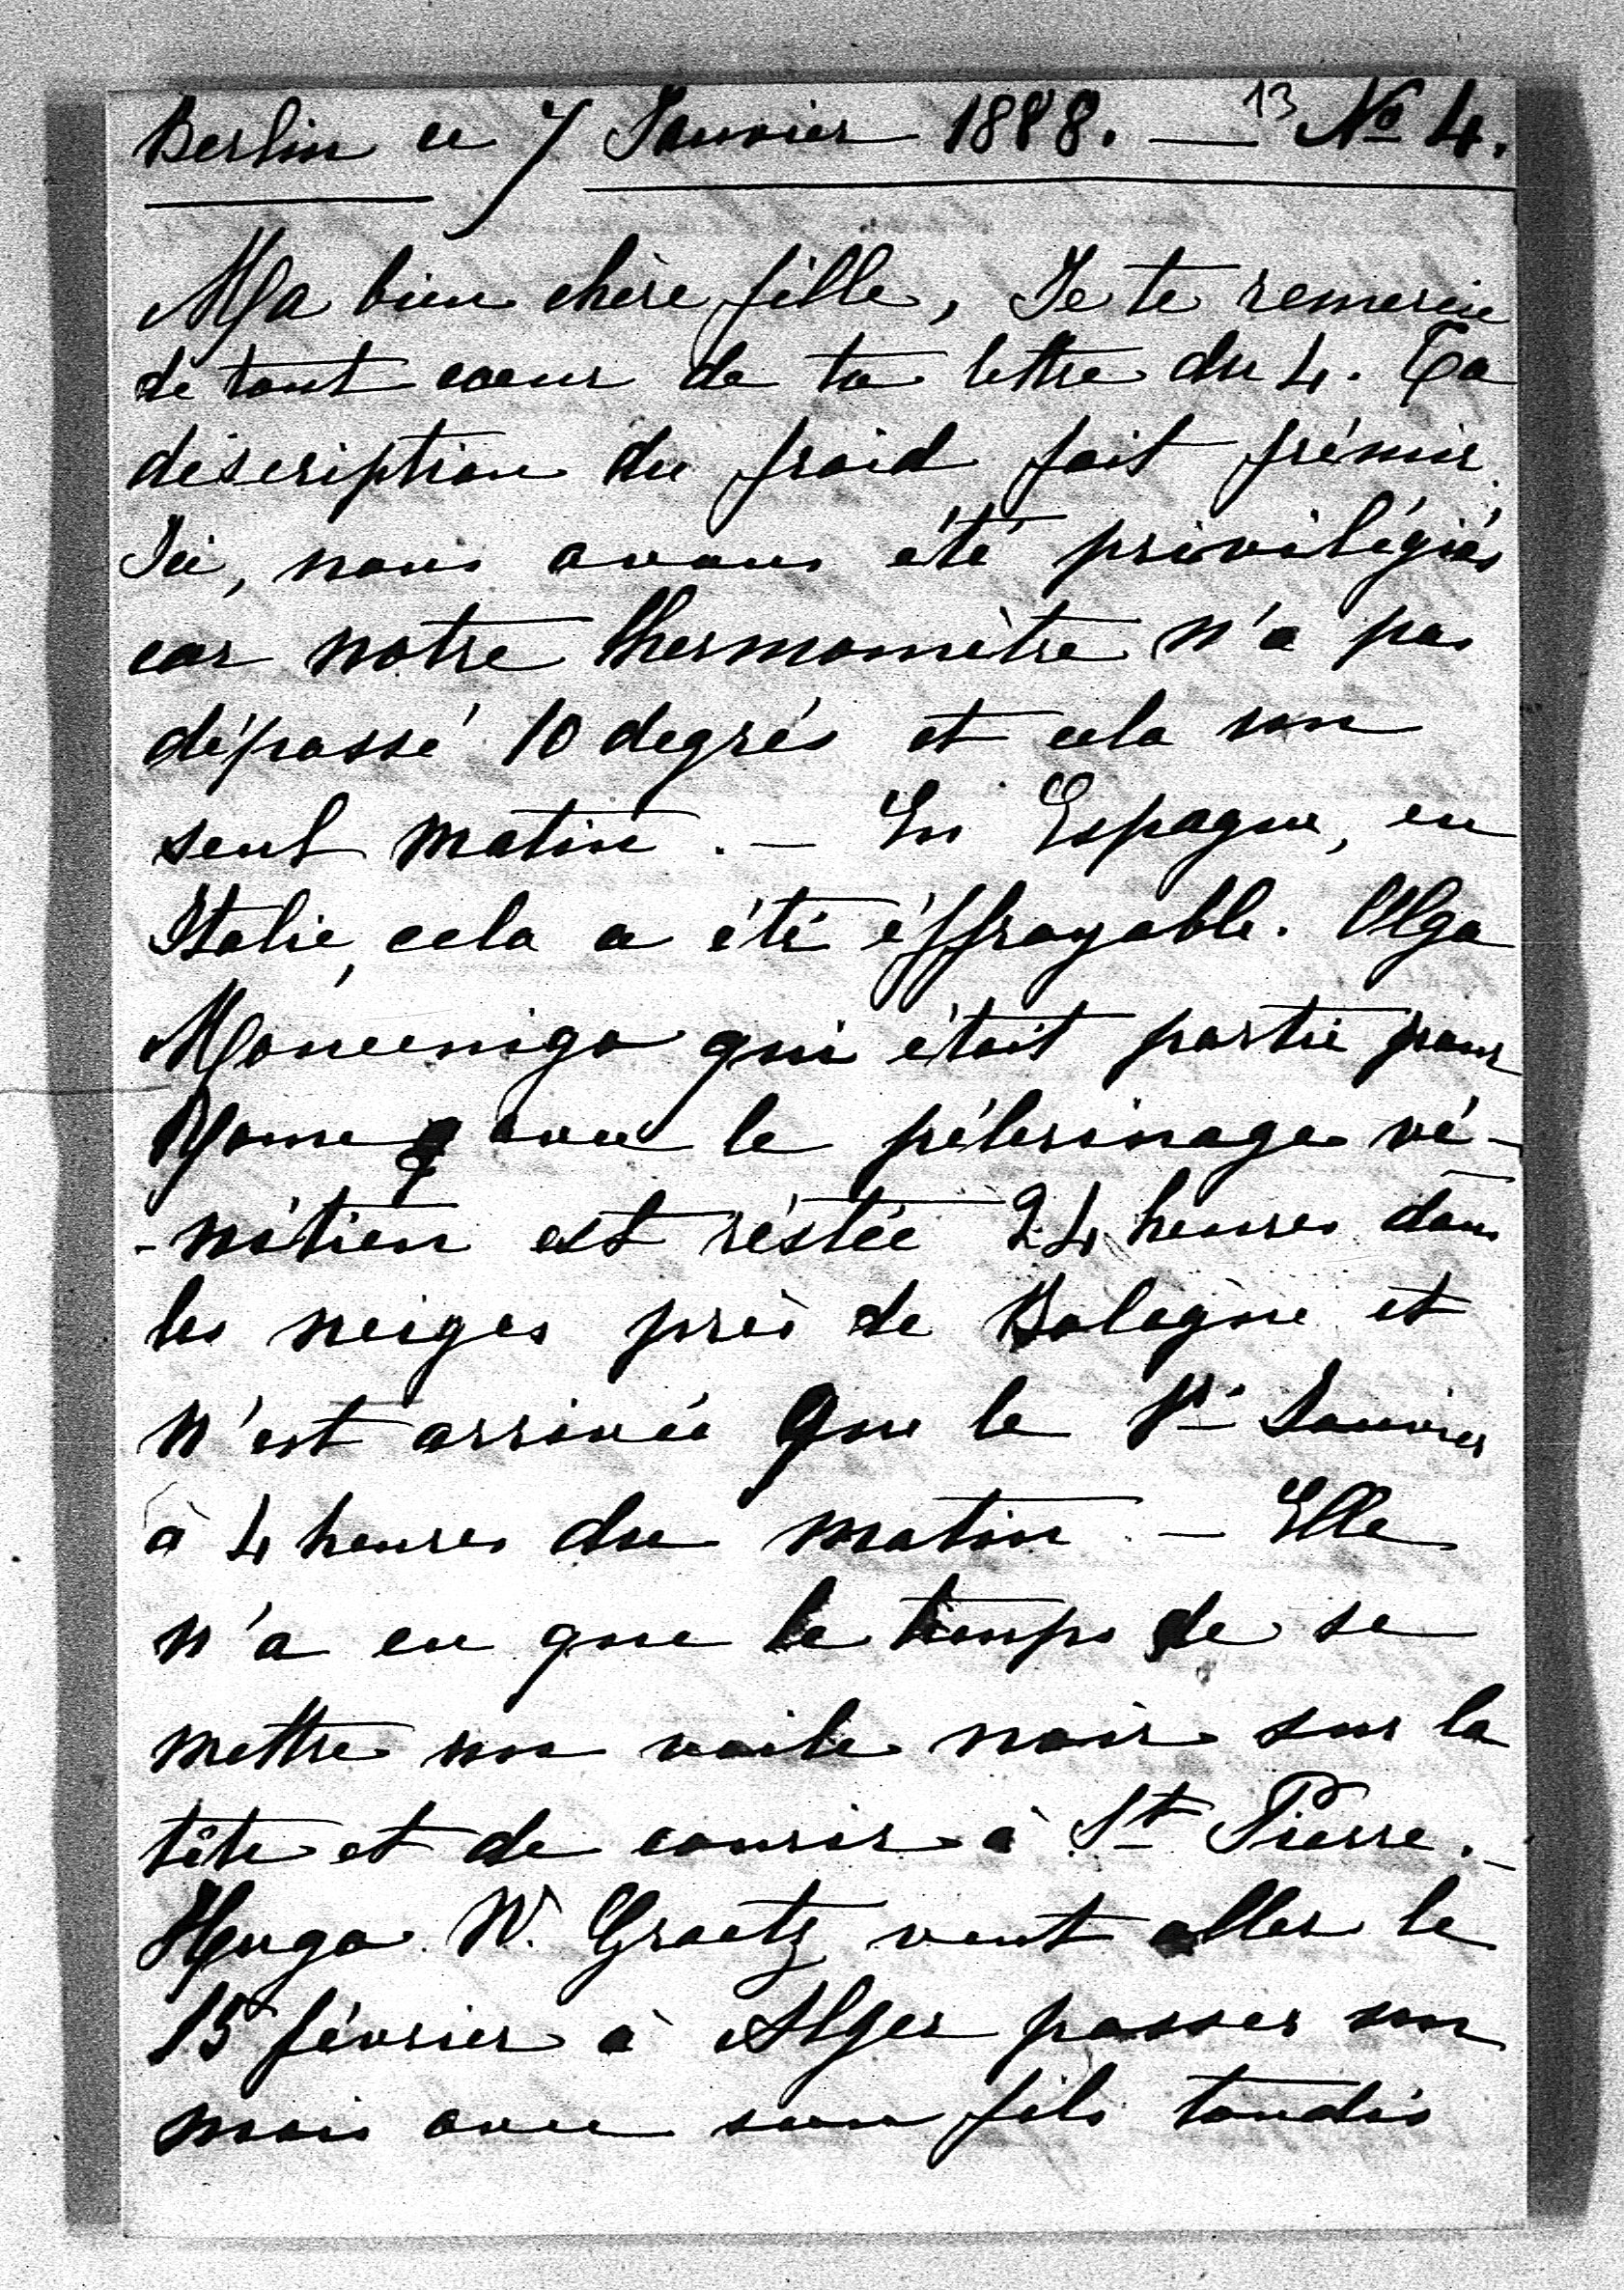 Berlin ce 7 Janvier 1888. — 13 No 4.
Ma bien chère fille, Je te remercie
de tout coeur de ta lettre du 4. Ta
déscription du froid fait frémir.
Ici, nous avons été privilégiés
car notre thermomètre n'a pas
dépassé 10 degrés et cela un
seul matin. — En Espagne, en
Italie, cela a été éffroyable. Olga
Moncenigo qui était partie pour
Rome avec le pélerinage vé-
-nétien est réstée 24 heures dans
les neiges près de Bologne et
n'est arrivée que le 1er Janvier
à 4 heures du matin — Elle
n'a eu que le temps de se
mettre un voile noir sur la
tête et de courir à St Pierre. —
Hugo W. Graetz veut aller le
15 février à Alger passer un
mois avec son fils tandis